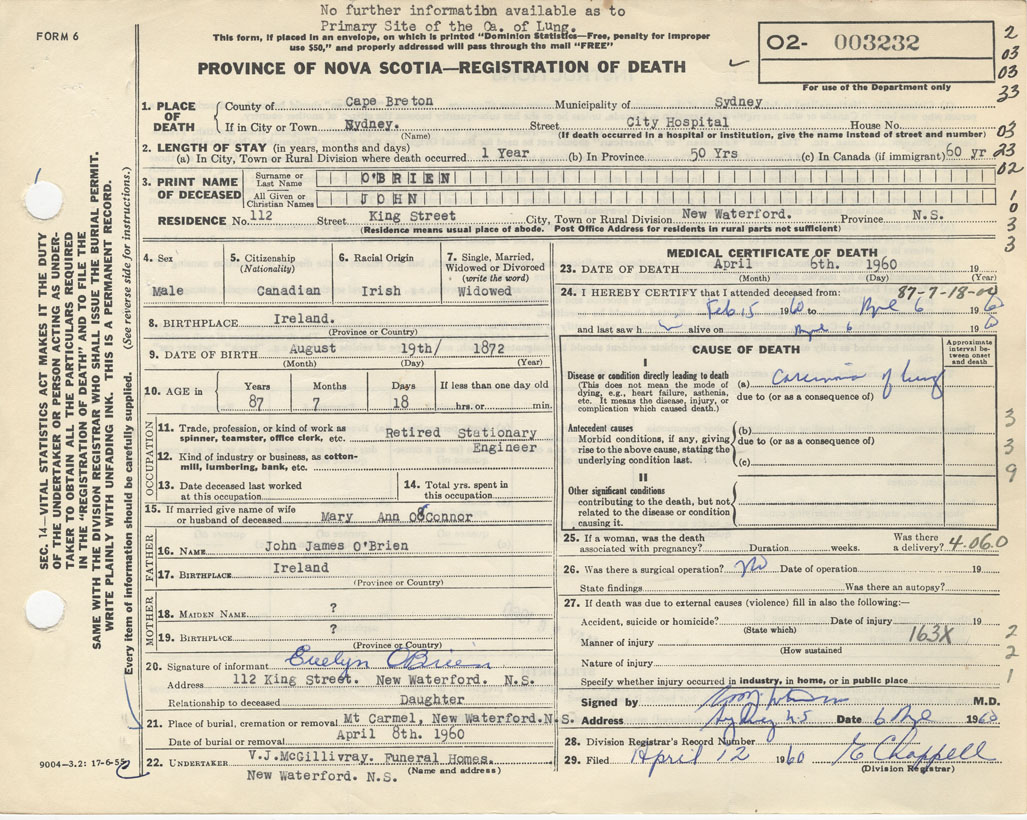 No further information available as to
Primary Site of the Ca. of Lung.
FORM 6
This form, if placed in an envelope, on which is printed "Dominion Statistics—Free, penalty for improper
use $50," and properly addressed will pass through the mail "FREE"
02- 003232
For use of the Department only
2
03
03
33
03
23
02
1
0
3
3
PROVINCE OF NOVA SCOTIA—REGISTRATION OF DEATH
1. PLACE OF DEATH County of Cape Breton Municipality of Sydney
If in City or Town Sydney. (Name) Street City Hospital House No.
(If death occurred in a hospital or institution, give the name instead of street and number)
2. LENGTH OF STAY (in years, months and days)
(a) In City, Town or Rural Division where death occurred 1 Year (b) In Province 50 Yrs (c) In Canada (if immigrant) 60 yr
3. PRINT NAME OF DECEASED Surname or Last Name O'BRIEN
All Given or Christian Names JOHN
RESIDENCE No. 112 Street King Street City, Town or Rural Division New Waterford. Province N.S.
(Residence means usual place of abode. Post Office Address for residents in rural parts not sufficient)
4. Sex Male
5. Citizenship (Nationality) Canadian
6. Racial Origin Irish
7. Single, Married, Widowed or Divorced (write the word) Widowed
8. BIRTHPLACE Ireland.
(Province or Country)
9. DATE OF BIRTH August 19th/ 1872
(Month) (Day) (Year)
10. AGE in Years 87 Months 7 Days 18 If less than one day old hrs. or min.
OCCUPATION
11. Trade, profession or kind of work as spinner, teamster, office clerk, etc. Retired Stationary
Engineer
12. Kind of industry or business, as cotton-mill, lumbering, bank, etc.
13. Date deceased last worked at this occupation
14. Total yrs. spent in this occupation
15. If married give name of wife or husband of deceased Mary Ann O'Connor
FATHER
16. NAME John James O'Brien
17. BIRTHPLACE Ireland
(Province or Country)
MOTHER
18. MAIDEN NAME ?
19. BIRTHPLACE ?
(Province or Country)
20. Signature of informant Evelyn O'Brien
Address 112 King Street. New Waterford. N.S.
Relationship to deceased Daughter
21. Place of burial, cremation or removal Mt Carmel, New Waterford. N.S.
Date of burial or removal April 8th. 1960
22. UNDERTAKER V.J.McGillivray. Funeral Homes.
(Name and address)
New Waterford. N.S.
MEDICAL CERTIFICATE OF DEATH
23. DATE OF DEATH April 6th. 1960 19
(Month) (Day) (Year)
24. I HEREBY CERTIFY that I attended deceased from: 87-7-18-00
Feb. 15 1960 to April 6 1960
and last saw h alive on April 6 1960
CAUSE OF DEATH
Approximate interval between onset and death
I
Disease or condition directly leading to death
(This does not mean the mode of dying, e.g., heart failure, asthenia, etc. It means the disease, injury, or complication which caused death.)
(a) Carcinoma of lung
due to (or as a consequence of)
Antecedent causes
Morbid conditions, if any, giving rise to the above cause, stating the underlying condition last.
(b)
due to (or as a consequence of)
(c)
II
Other significant conditions
contributing to the death, but not related to the disease or condition causing it.
3
3
9
25. If a woman, was the death associated with pregnancy? Duration weeks. Was there a delivery? 4.060
26. Was there a surgical operation? No Date of operation 19
State findings Was there an autopsy?
27. If death was due to external causes (violence) fill in also the following:—
Accident, suicide or homicide? (State which) Date of injury 19
Manner of injury 163X
(How sustained
Nature of injury
Specify whether injury occurred in industry, in home, or in public place
2
2
1
Signed by M.D.
Address Sydney NS Date 6 Apl 1960
28. Division Registrar's Record Number
29. Filed April 12 1960 E Chappell
(Division Registrar)
SEC. 14—VITAL STATISTICS ACT MAKES IT THE DUTY
OF THE UNDERTAKER OR PERSON ACTING AS UNDER-
TAKER TO OBTAIN ALL THE PARTICULARS REQUIRED
IN THE "REGISTRATION OF DEATH" AND TO FILE THE
SAME WITH THE DIVISION REGISTRAR WHO SHALL ISSUE THE BURIAL PERMIT.
WRITE PLAINLY WITH UNFADING INK. THIS IS A PERMANENT RECORD.
Every item of information should be carefully supplied. (See reverse side for instructions.)
9004—3.2: 17-6-55